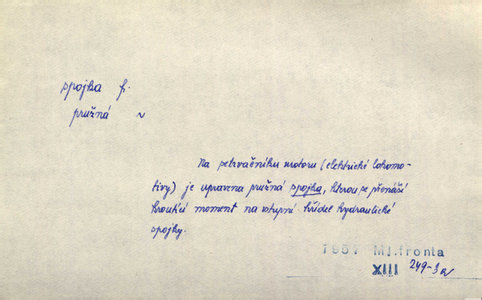 spojka f.
pružná ~
Na setrvačníku motoru (elektrické lokomo-
tivy) je upravena pružná spojka, kterou se přenáší
kroutící moment na vstupní hřídel hydraulické
spojky.
1957 Ml.fronta
XIII 249-3a